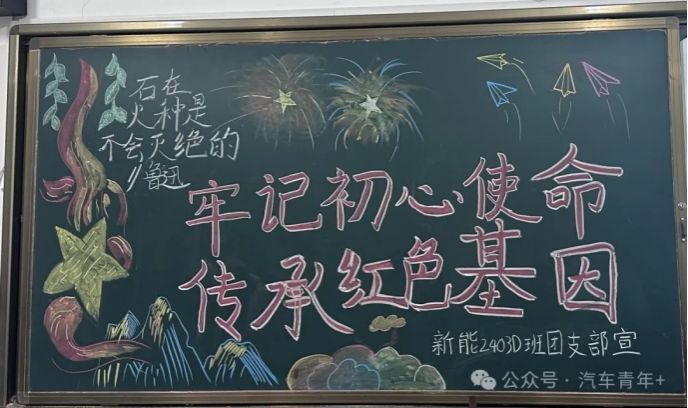 石在
火种是
不会灭绝的
鲁迅
牢记初心使命
传承红色基因
新能2403D班团支部宣
公众号·汽车青年+